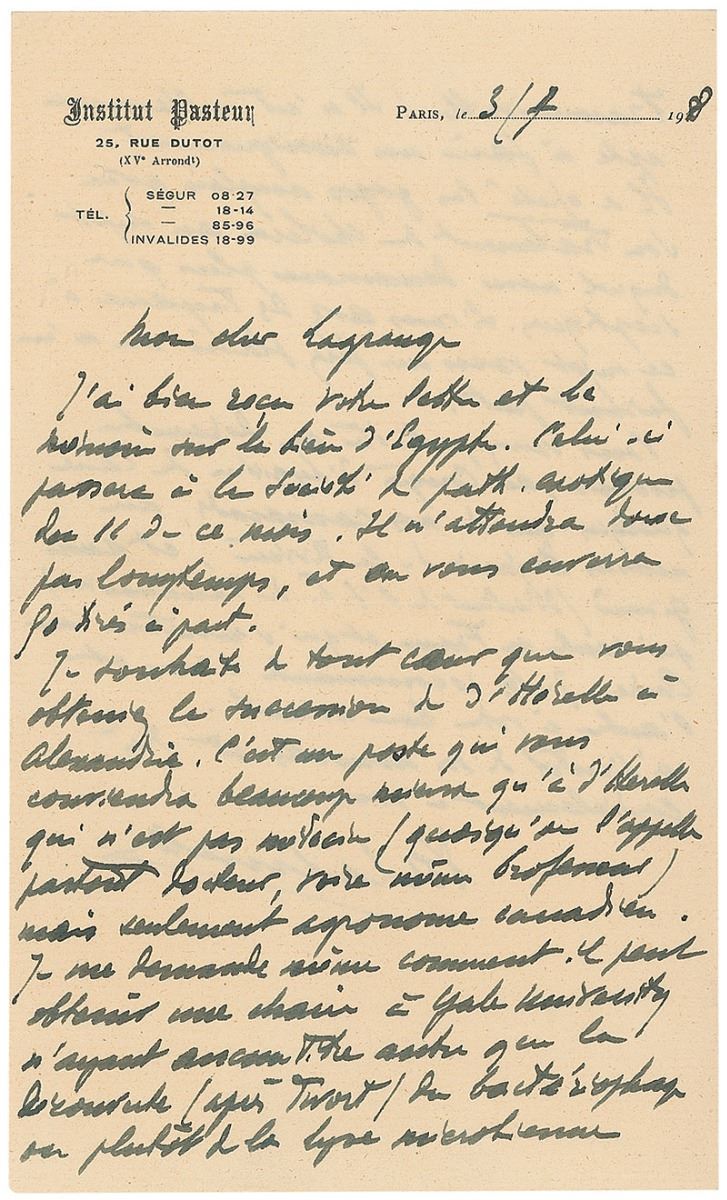 Institut Pasteur
25, RUE DUTOT
(XVe Arrondt)
TÉL. SÉGUR 08-27
— 18-14
— 85-96
INVALIDES 18-99
PARIS, le 3/7 1928
Mon cher Lagrange
J'ai bien reçu votre lettre et le
mémoire sur le bleu d'Egypte. Celui-ci
passera à la Société de path. exotique
du 11 de ce mois. Il n'attendra donc
pas longtemps, et on vous enverra
50 tirés à part.
Je souhaite de tout cœur que vous
obteniez la succession de d'Herelle à
Alexandrie. C'est un poste qui vous
conviendra beaucoup mieux qu'à d'Herelle
qui n'est pas médecin (quoiqu'on l'appelle
partout docteur, voire même Professeur)
mais seulement agronome canadien.
Je me demande même comment il peut
obtenir une chaire à Yale University
n'ayant aucun Titre autre que la
découverte (après Twort) du bactériophage
ou plutôt de la lyse microbienne